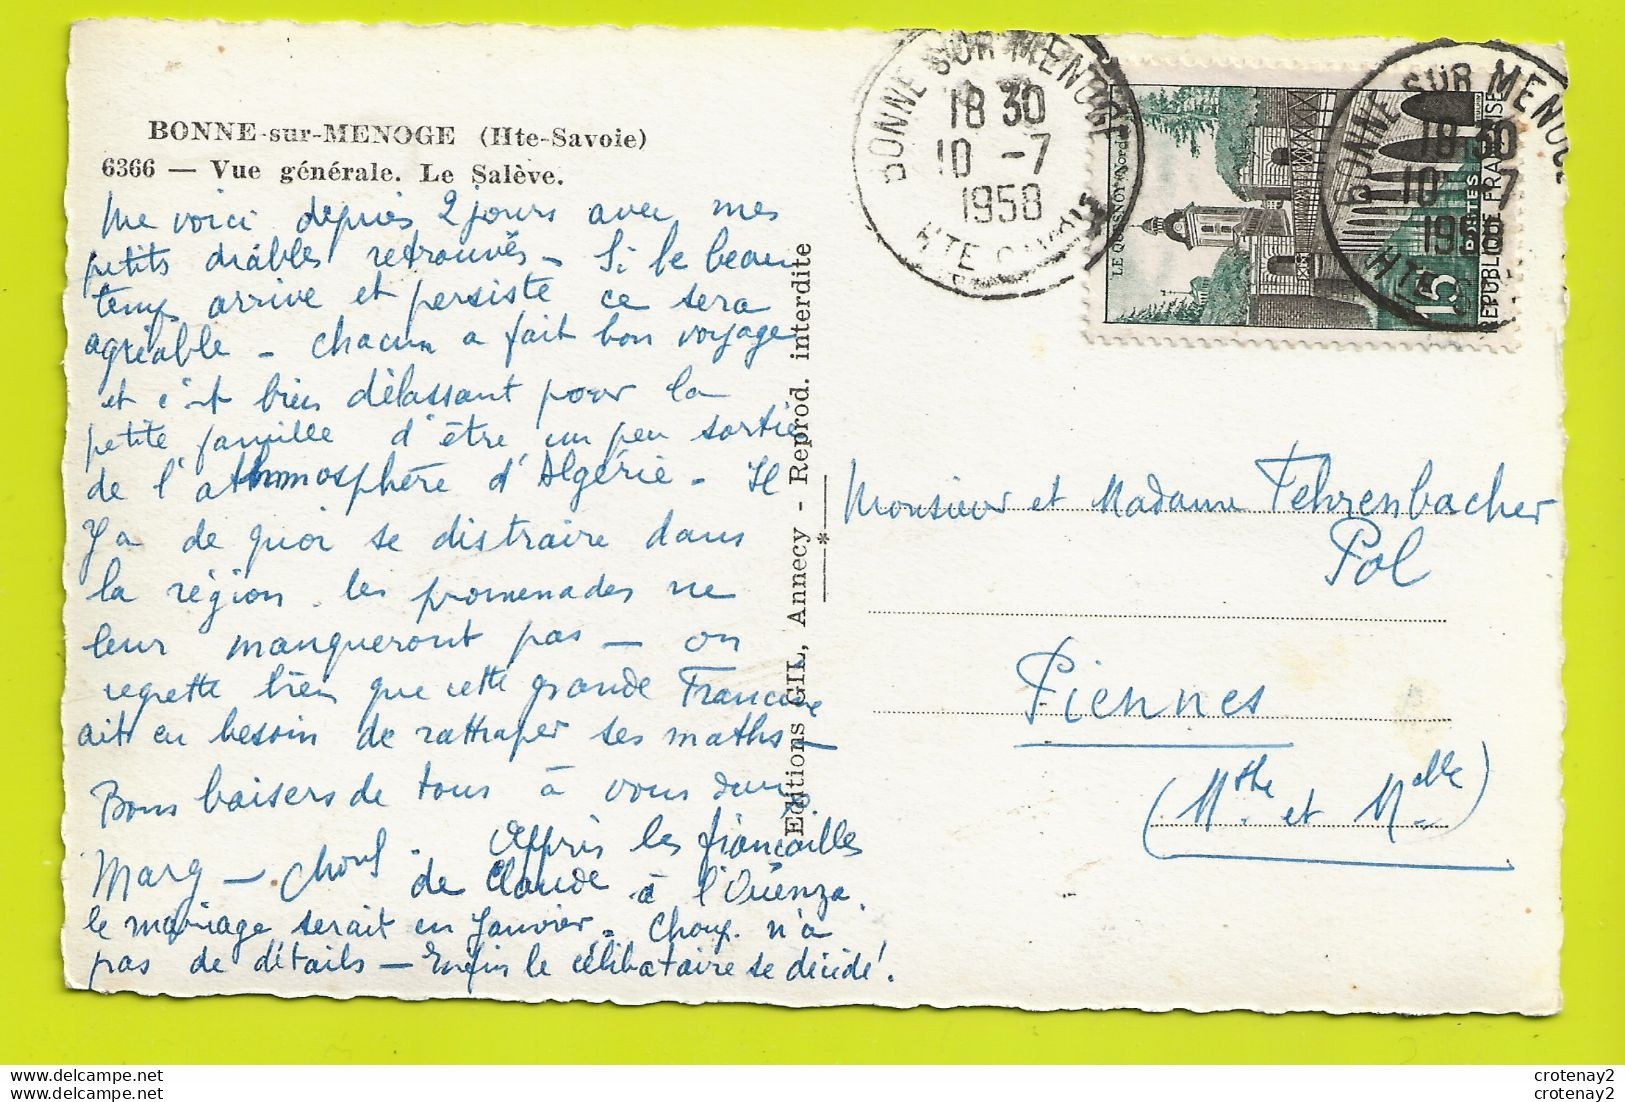 BONNE-sur-MENOGE (Hte-Savoie)
6366 — Vue générale. Le Salève.
Me voici depuis 2 jours avec mes
petits diables retrouvés - Si le beau
temps arrive et persiste ce sera
agréable - Chacun a fait bon voyage
et c'est bien délassant pour la
petite famille d'être un peu sortie
de l'athmosphère d'Algérie - Il
Y a de quoi se distraire dans
la région. les promenades ne
leur manqueront pas - on
regrette bien que cette grande Francine
ait eu besoin de rattraper ses maths -
Bons baisers de tous à vous
Marg - Choul. Appris les fiançailles
de Claude à l'Ouenza.
le mariage serait en Janvier. Choup. n'a
pas de détails - Enfin le célibataire se décide!
Editions GIL, Annecy - Reprod. interdite
BONNE SUR MENOGE
18 30
10 -7
1958
HTE SAVOIE
LE QUESNOY (Nord)
15F
POSTES
REPUBLIQUE FRANÇAISE
BONNE SUR MENOGE
18 30
10 -7
1958
HTE
Monsieur et Madame Fehrenbacher
Pol
Piennes
(Mthe et Mlle)
delcampe.net
delcampe.net
crotenay2
crotenay2